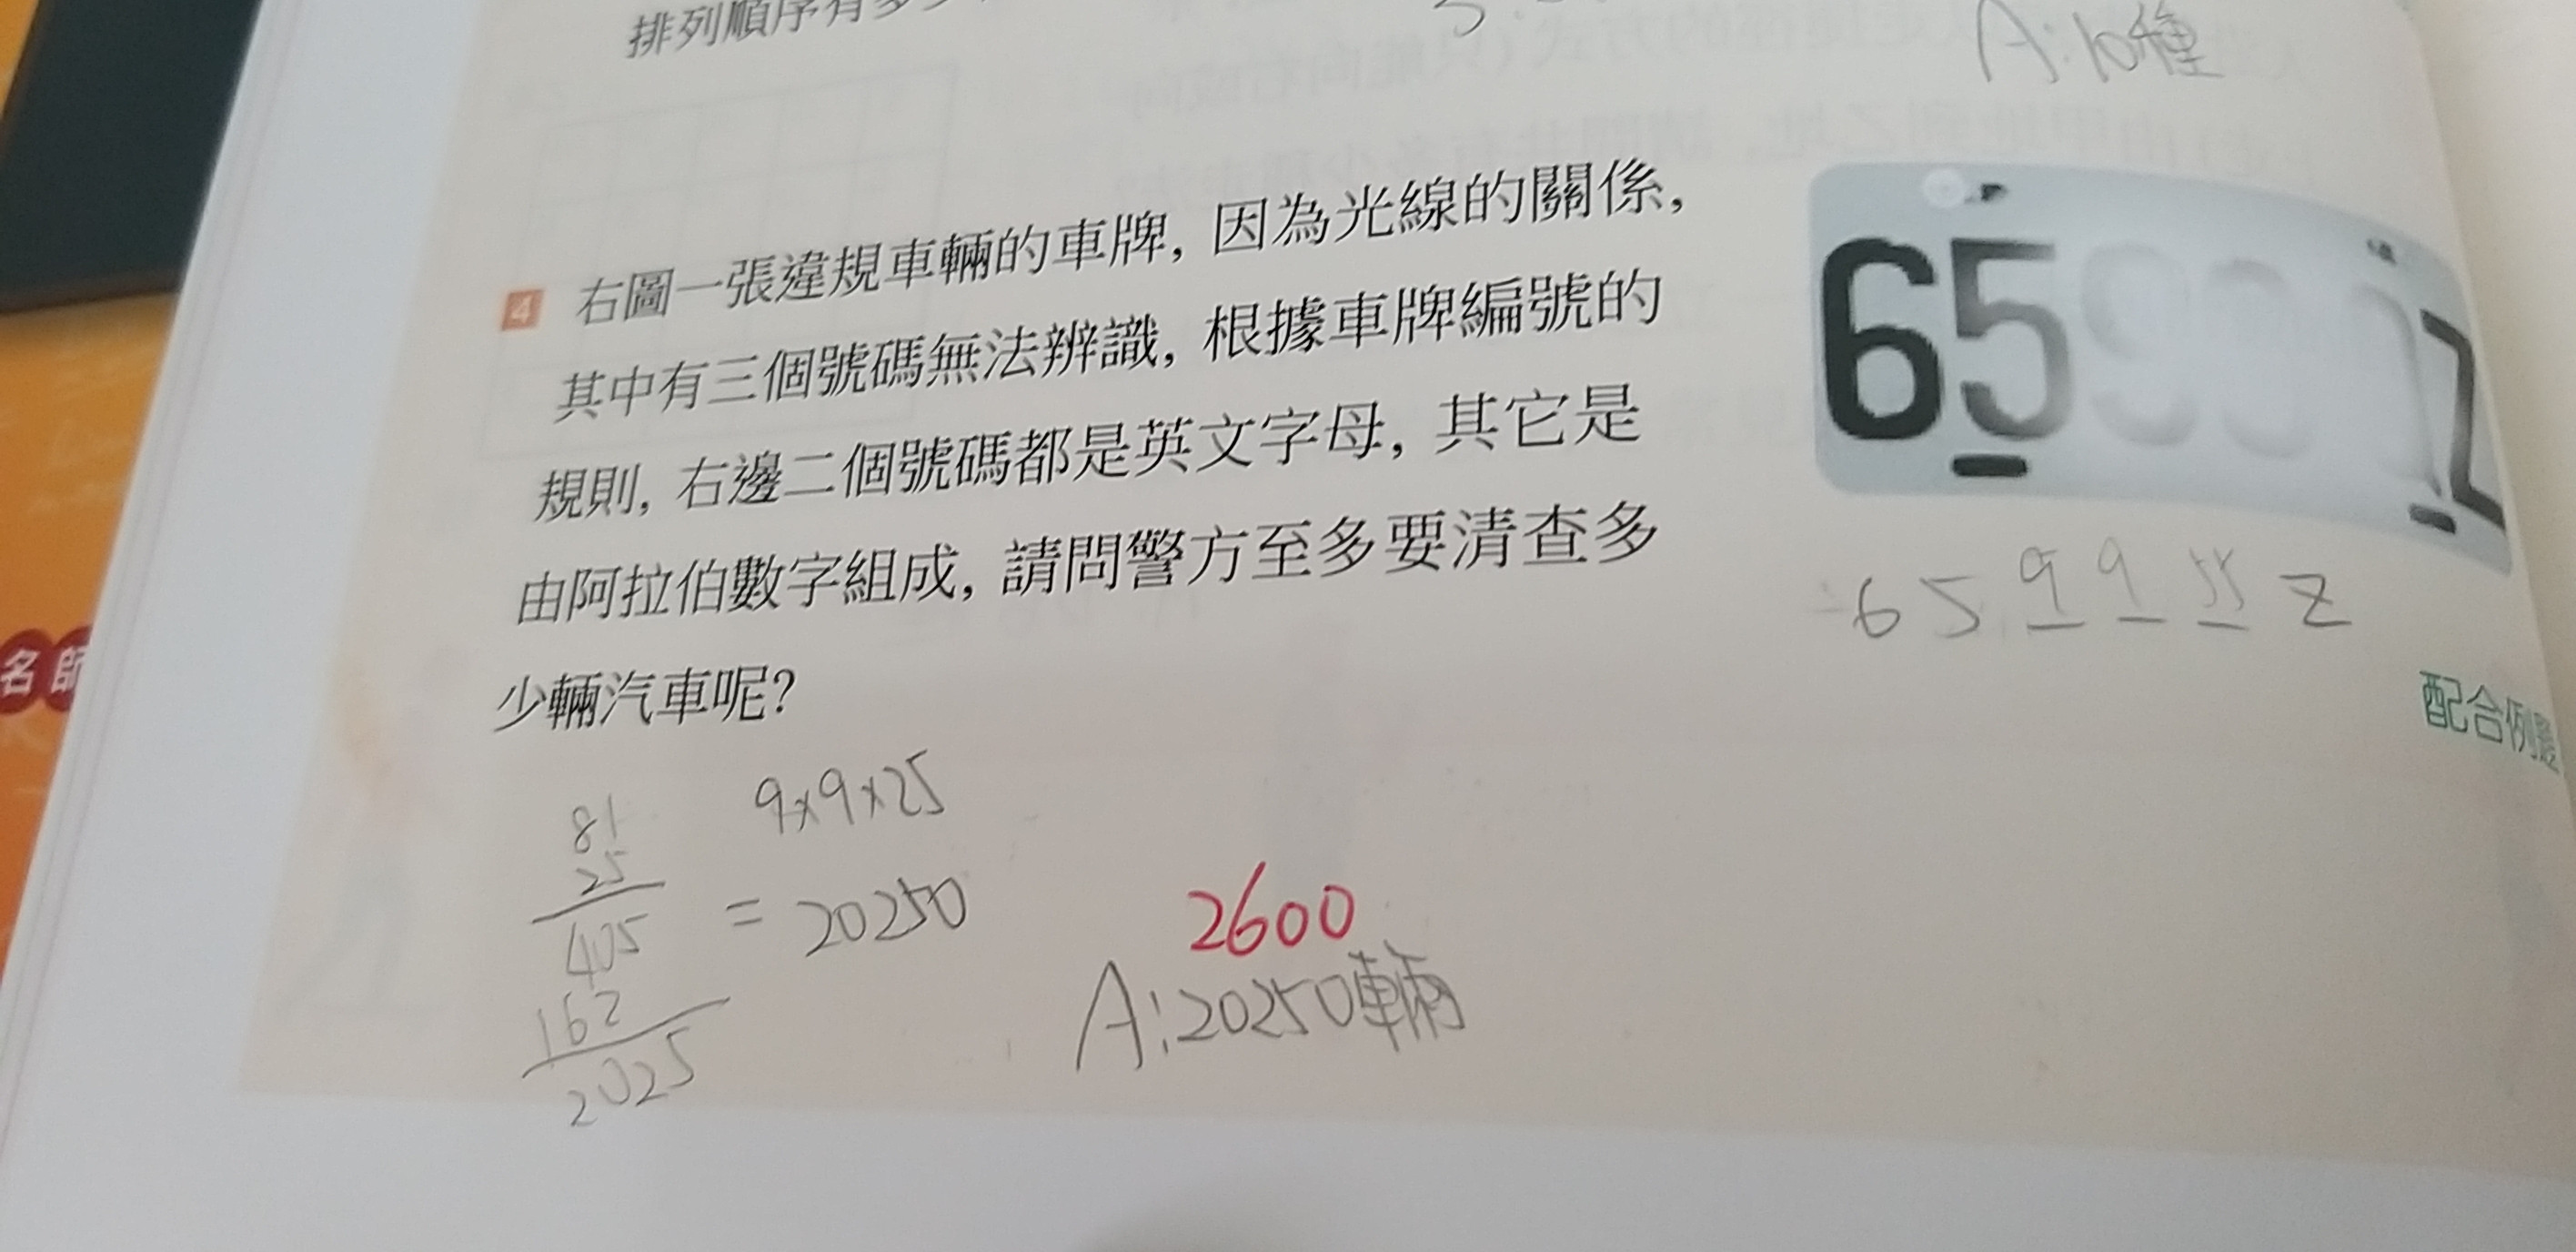 排列順序有多
A:10種
4 右圖一張違規車輛的車牌, 因為光線的關係,
其中有三個號碼無法辨識, 根據車牌編號的
規則, 右邊二個號碼都是英文字母, 其它是
由阿拉伯數字組成, 請問警方至多要清查多
少輛汽車呢?
65 Z
6 5 9 9 Z
配合例題
名師
9×9×25
81
25
405
162
2025
= 20250
2600
A:20250輛